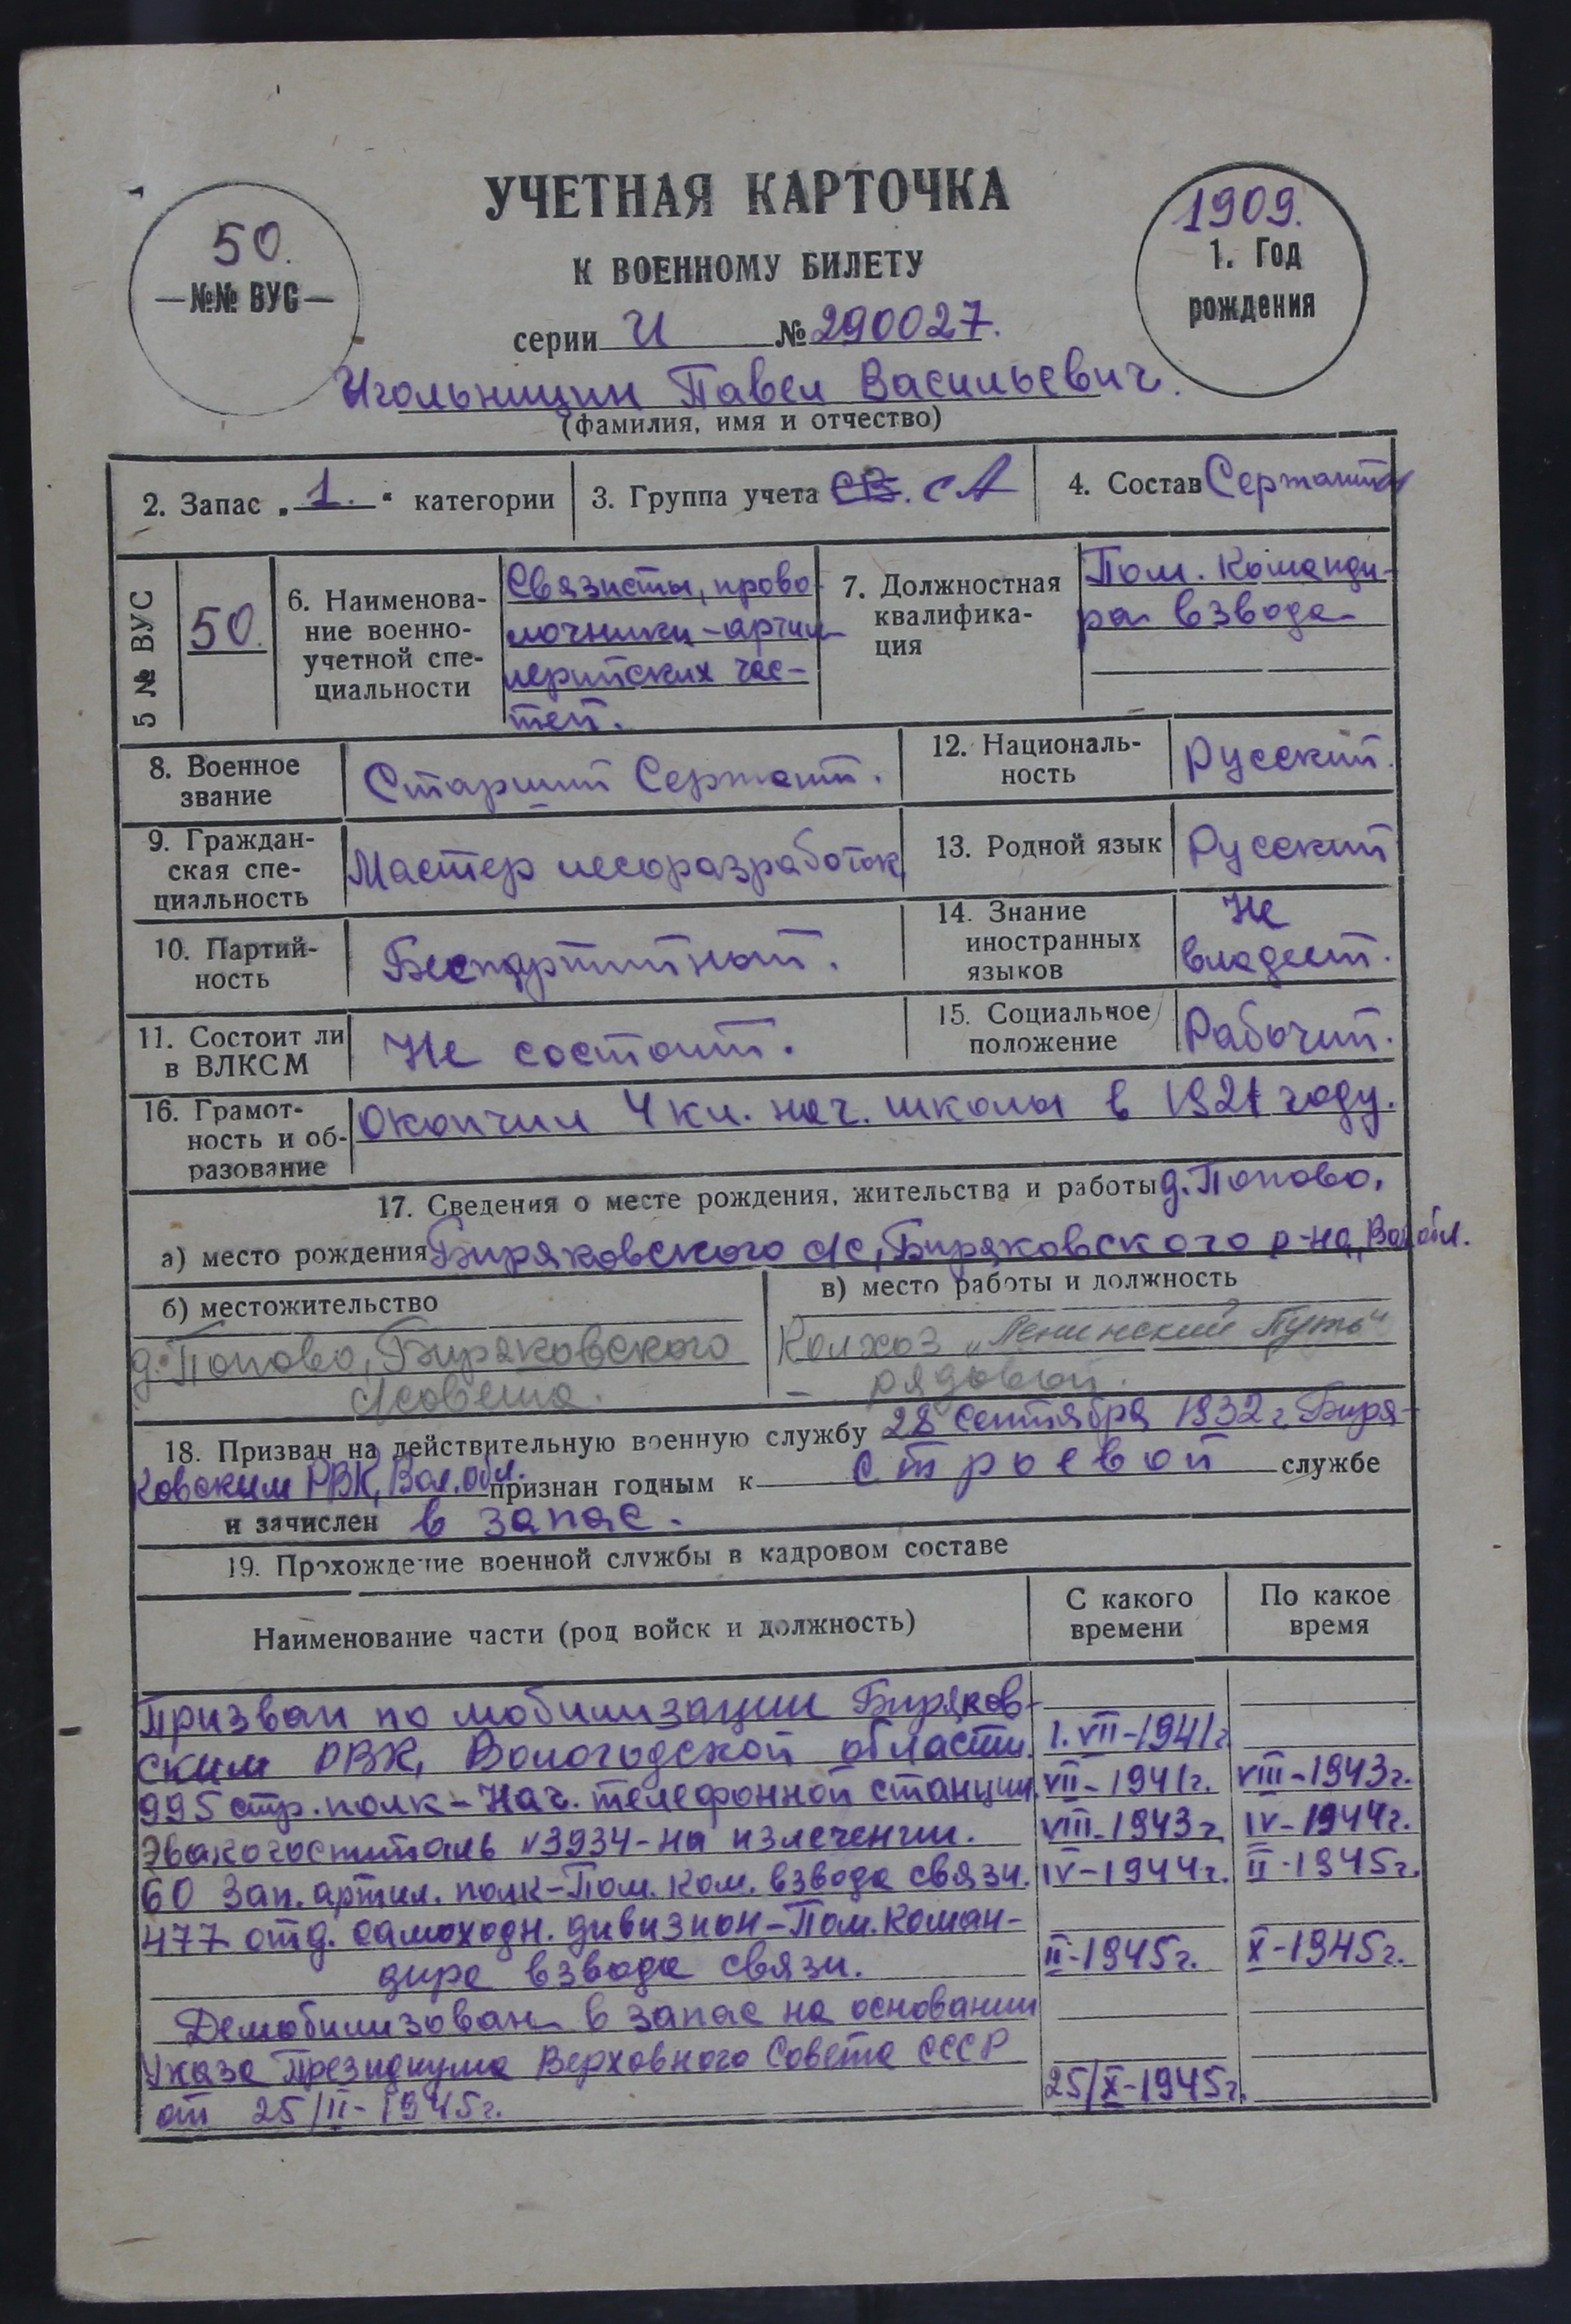 УЧЕТНАЯ КАРТОЧКА
К ВОЕННОМУ БИЛЕТУ
50.
—№№ ВУС—
1909.
1. Год
рождения
серии И № 290027.
Игольницин Павел Васильевич.
(фамилия, имя и отчество)
2. Запас „ 1. “ категории
3. Группа учета СВ. СА
4. Состав Сержанты
5 № ВУС
50.
6. Наименова-
ние военно-
учетной спе-
циальности
Связисты, прово
лочники-артил
лерийских час-
тей.
7. Должностная
квалифика-
ция
Пом. Команди-
ра взвода
8. Военное
звание
Старший Сержант.
12. Националь-
ность
Русский.
9. Граждан-
ская спе-
циальность
Мастер лесоразработок
13. Родной язык
Русский
10. Партий-
ность
Беспартийный.
14. Знание
иностранных
языков
Не
владеет.
11. Состоит ли
в ВЛКСМ
Не состоит.
15. Социальное
положение
Рабочий.
16. Грамот-
ность и об-
разование
Окончил 4 кл. нач. школы в 1921 году.
17. Сведения о месте рождения, жительства и работы д. Попово,
а) место рождения Биряковского с/с, Биряковского р-на, Вол.обл.
б) местожительство
д. Попово, Биряковского
с/совета.
в) место работы и должность
Колхоз „Ленинский Путь“
– рядовой.
18. Призван на действительную военную службу 28 Сентября 1932 г. Биря-
ковским РВК, Вол.обл. признан годным к строевой службе
и зачислен в запас.
19. Прохождение военной службы в кадровом составе
Наименование части (род войск и должность)
С какого
времени
По какое
время
Призван по мобилизации Биряков-
ским РВК, Вологодской области. 1.VII-1941г
995 стр. полк – Нач. телефонной станции. VII-1941г. VIII-1943г.
Эвакогоспиталь №3934 - на излечении. VIII-1943г. IV-1944г.
60 Зап. артил. полк – Пом. Ком. взвода связи. IV-1944г. II-1945г.
477 отд. самоходн. дивизион – Пом. Коман-
дира взвода связи. II-1945г. X-1945г.
Демобилизован в запас на основании
Указа Президиума Верховного Совета СССР
от 25/II-1945г. 25/X-1945г.